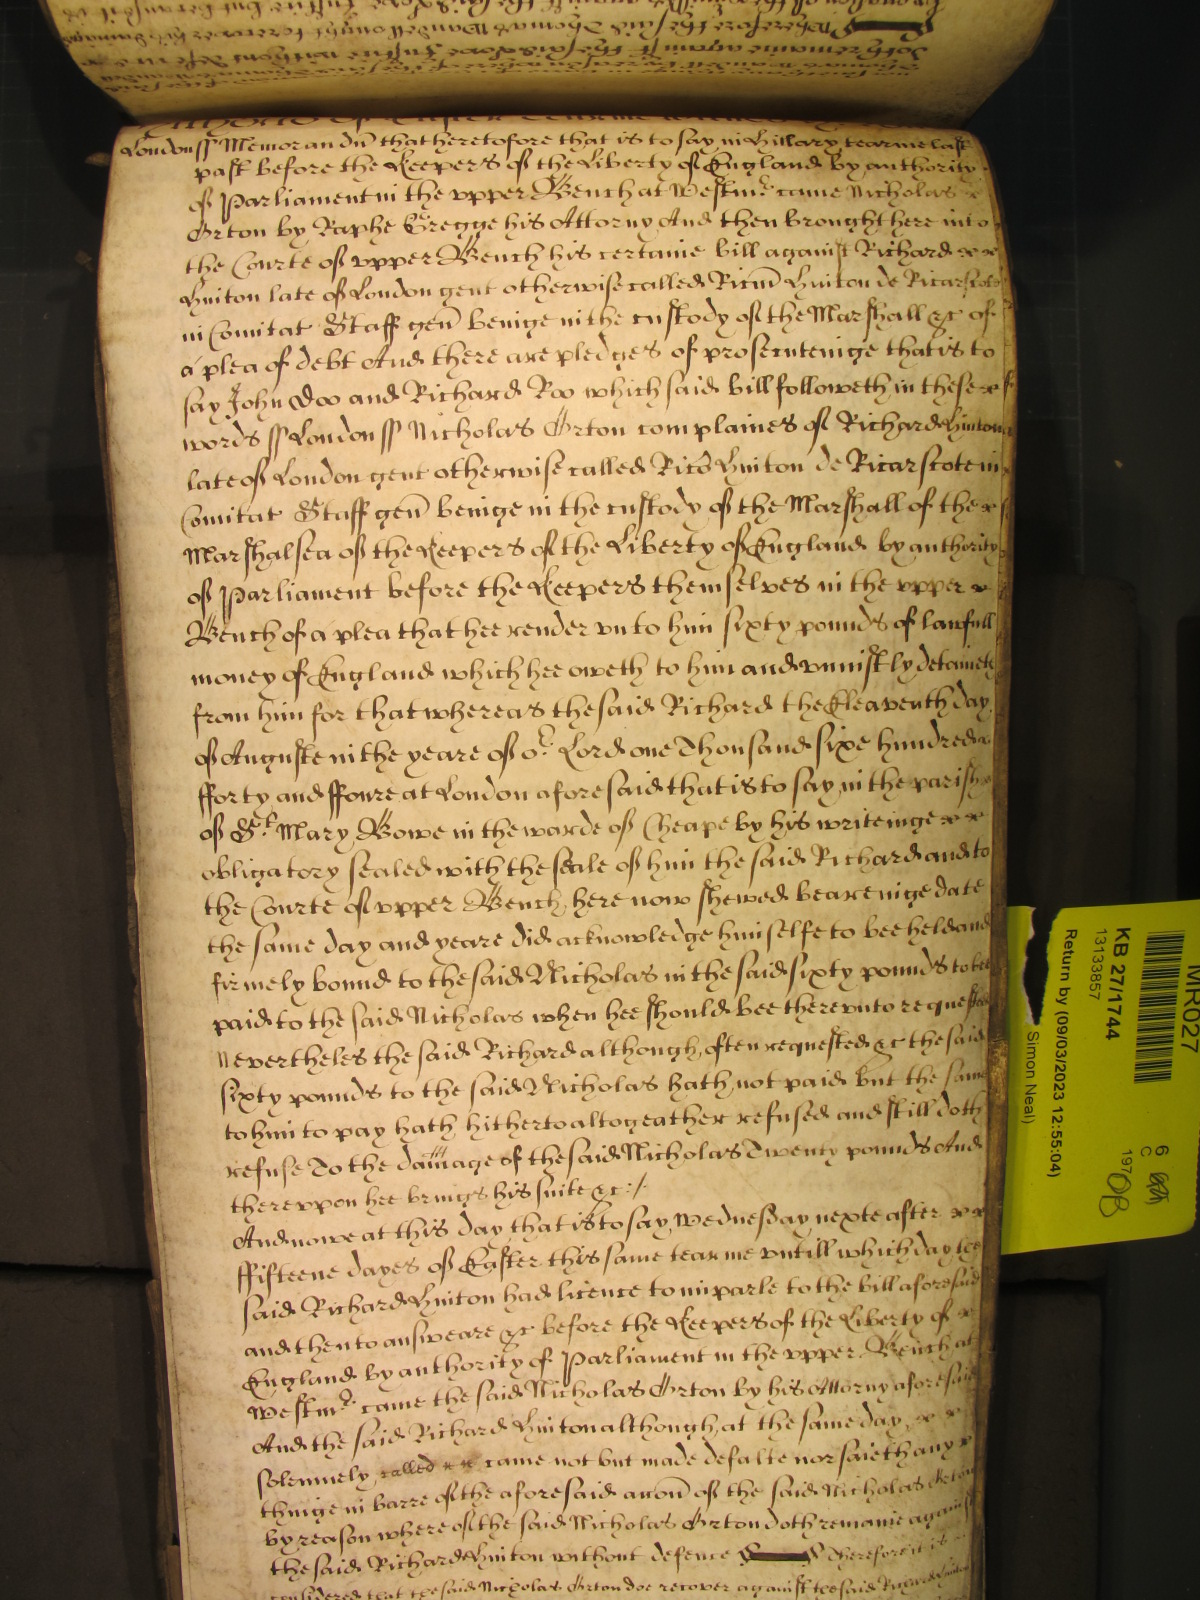 London ss Memorandũ that heretofore that is to say in Hillary tearme last
past before the Keepers of the Liberty of England by authority
of Parliament in the vpper Bench at Westmr came Nicholas
Orton by Raphe Gregge his Attorny And then brought here into
the Courte of vpper Bench his certaine bill against Richard
Hinton late of London gent otherwise called Ricũ Hinton de Ricarscote
in Comitat Staff gen̄ beinge in the custody of the Marshall &c of
a plea of debt And there are pledges of prosecuteinge that is to
say John Doo and Richard Roo which said bill followeth in these
words ss London ss Nicholas Orton complaines of Richard Hinton
late of London gent otherwise called Ricõ Hinton de Ricarscote in
Comitat Staff gen̄ beinge in the custody of the Marshall of the
Marshalsea of the Keepers of the Liberty of England by authority
of Parliament before the Keepers themselves in the vpper
Bench of a plea that hee render vnto him sixty pounds of lawfull
money of England which hee oweth to him and vniustly detaineth
from him for that whereas the said Richard the Eleaventh day
of Auguste in the yeare of or Lord one Thousand sixe hundred
fforty and ffoure at London aforesaid that is to say in the parish
of St Mary Bowe in the warde of Cheape by his writeinge
obligatory sealed with the seale of him the said Richard and to
the Courte of vpper Bench here now shewed beareinge date
the same day and yeare did acknowledge himselfe to bee held and
firmely bound to the said Nicholas in the said sixty pounds to bee
paid to the said Nicholas when hee should bee therevnto requested
Nevertheles the said Richard although often requested &c the said
sixty pounds to the said Nicholas hath not paid but the same
to him to pay hath hitherto altogeather refused and still doth
refuse To the damage of the said Nicholas Twenty pounds And
therevppon hee brings his suite &c
And nowe at this day that is to say Wednesday nexte after
ffifteene dayes of Easter this same tearme vntill which day the
said Richard Hinton had licence to imparle to the bill aforesaid
and then to answeare &c before the Keepers of the Liberty of
England by authority of Parliament in the vpper Bench at
Westmr came the said Nicholas Orton by his Attorny aforesaid
And the said Richard Hinton although at the same day
solemnely called came not but made defalte nor saieth any
thinge in barre of the aforesaid accoñ of the said Nicholas Orton
by reason whereof the said Nicholas Orton doth remaine against
the said Richard Hinton without defence Therefore it is
considered that the said Nicholas Orton doe recover against the said Richard Hinton
MR027
KB 27/1744
13133857
Return by (09/03/2023 12:55:04)
Simon Neal)
6
C
197